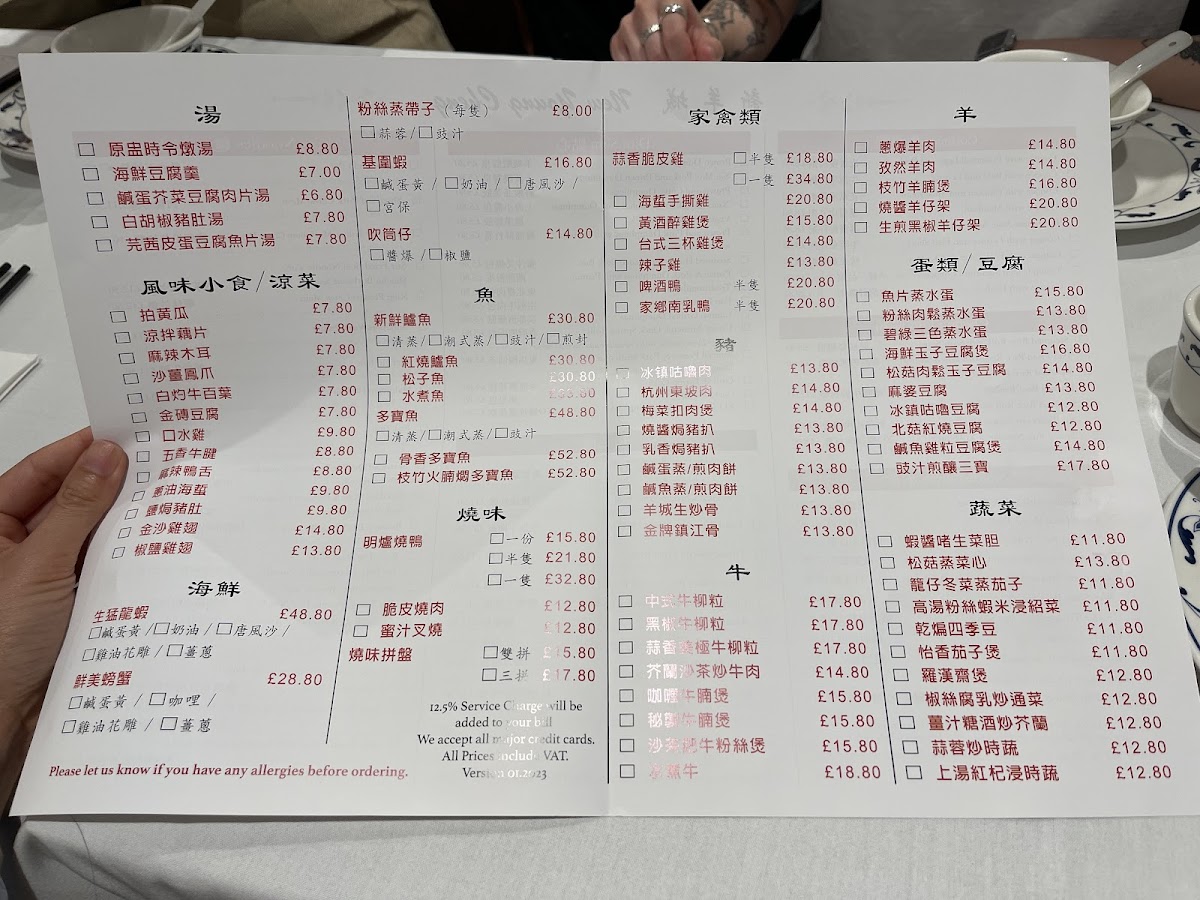 湯
□ 原盅時令燉湯 £8.80
□ 海鮮豆腐羹 £7.00
□ 鹹蛋芥菜豆腐肉片湯 £6.80
□ 白胡椒豬肚湯 £7.80
□ 芫茜皮蛋豆腐魚片湯 £7.80
風味小食/涼菜
□ 拍黃瓜 £7.80
□ 涼拌藕片 £7.80
□ 麻辣木耳 £7.80
□ 沙薑鳳爪 £7.80
□ 白灼牛百葉 £7.80
□ 金磚豆腐 £7.80
□ 口水雞 £9.80
□ 五香牛腱 £8.80
□ 麻辣鴨舌 £8.80
□ 蔥油海蜇 £9.80
□ 鹽焗豬肚 £9.80
□ 金沙雞翅 £14.80
□ 椒鹽雞翅 £13.80
海鮮
生猛龍蝦 £48.80
□鹹蛋黃/□奶油/□唐風沙/
□雞油花雕/□薑蔥
鮮美螃蟹 £28.80
□鹹蛋黃/□咖哩/
□雞油花雕/□薑蔥
Please let us know if you have any allergies before ordering.
粉絲蒸帶子(每隻) £8.00
□蒜蓉/□豉汁
基圍蝦 £16.80
□鹹蛋黃/□奶油/□唐風沙/
□宮保
吹筒仔 £14.80
□醬爆/□椒鹽
魚
新鮮鱸魚 £30.80
□清蒸/□潮式蒸/□豉汁/□煎封
□ 紅燒鱸魚 £30.80
□ 松子魚 £30.80
□ 水煮魚
多寶魚 £48.80
□清蒸/□潮式蒸/□豉汁
□ 骨香多寶魚 £52.80
□ 枝竹火腩燜多寶魚 £52.80
燒味
明爐燒鴨 □一份 £15.80
□半隻 £21.80
□一隻 £32.80
□ 脆皮燒肉 £12.80
□ 蜜汁叉燒 £12.80
燒味拼盤 □雙拼 £15.80
□三拼 £17.80
12.5% Service Charge will be
added to your bill
We accept all major credit cards.
All Prices include VAT.
Version 01.2023
家禽類
蒜香脆皮雞 □半隻 £18.80
□一隻 £34.80
□ 海蜇手撕雞 £20.80
□ 黃酒醉雞煲 £15.80
□ 台式三杯雞煲 £14.80
□ 辣子雞 £13.80
□ 啤酒鴨 半隻 £20.80
□ 家鄉南乳鴨 半隻 £20.80
豬
□ 冰镇咕嚕肉 £13.80
□ 杭州東坡肉 £14.80
□ 梅菜扣肉煲 £14.80
□ 燒醬焗豬扒 £13.80
□ 乳香焗豬扒 £13.80
□ 鹹蛋蒸/煎肉餅 £13.80
□ 鹹魚蒸/煎肉餅 £13.80
□ 羊城生炒骨 £13.80
□ 金牌鎮江骨 £13.80
牛
□ 中式牛柳粒 £17.80
□ 黑椒牛柳粒 £17.80
□ 蒜香 極牛柳粒 £17.80
□ 芥蘭沙茶炒牛肉 £14.80
□ 咖喱牛腩煲 £15.80
□ 秘製牛腩煲 £15.80
□ 沙茶肥牛粉絲煲 £15.80
□ 牛 £18.80
羊
□ 蔥爆羊肉 £14.80
□ 孜然羊肉 £14.80
□ 枝竹羊腩煲 £16.80
□ 燒醬羊仔架 £20.80
□ 生煎黑椒羊仔架 £20.80
蛋類/豆腐
□ 魚片蒸水蛋 £15.80
□ 粉絲肉鬆蒸水蛋 £13.80
□ 碧綠三色蒸水蛋 £13.80
□ 海鮮玉子豆腐煲 £16.80
□ 松菇肉鬆玉子豆腐 £14.80
□ 麻婆豆腐 £13.80
□ 冰镇咕嚕豆腐 £12.80
□ 北菇紅燒豆腐 £12.80
□ 鹹魚雞粒豆腐煲 £14.80
□ 豉汁煎釀三寶 £17.80
蔬菜
□ 蝦醬啫生菜胆 £11.80
□ 松菇蒸菜心 £13.80
□ 龍仔冬菜蒸茄子 £11.80
□ 高湯粉絲蝦米浸紹菜 £11.80
□ 乾煸四季豆 £11.80
□ 怡香茄子煲 £11.80
□ 羅漢齋煲 £12.80
□ 椒絲腐乳炒通菜 £12.80
□ 薑汁糖酒炒芥蘭 £12.80
□ 蒜蓉炒時蔬 £12.80
□ 上湯紅杞浸時蔬 £12.80